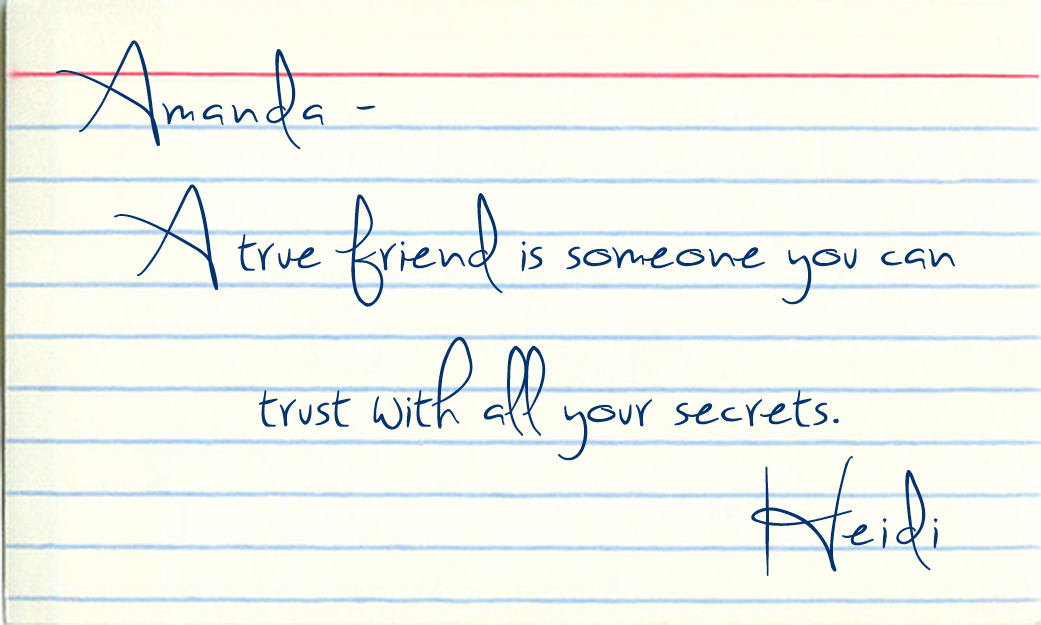 Amanda -
A true friend is someone you can
trust with all your secrets.
Heidi